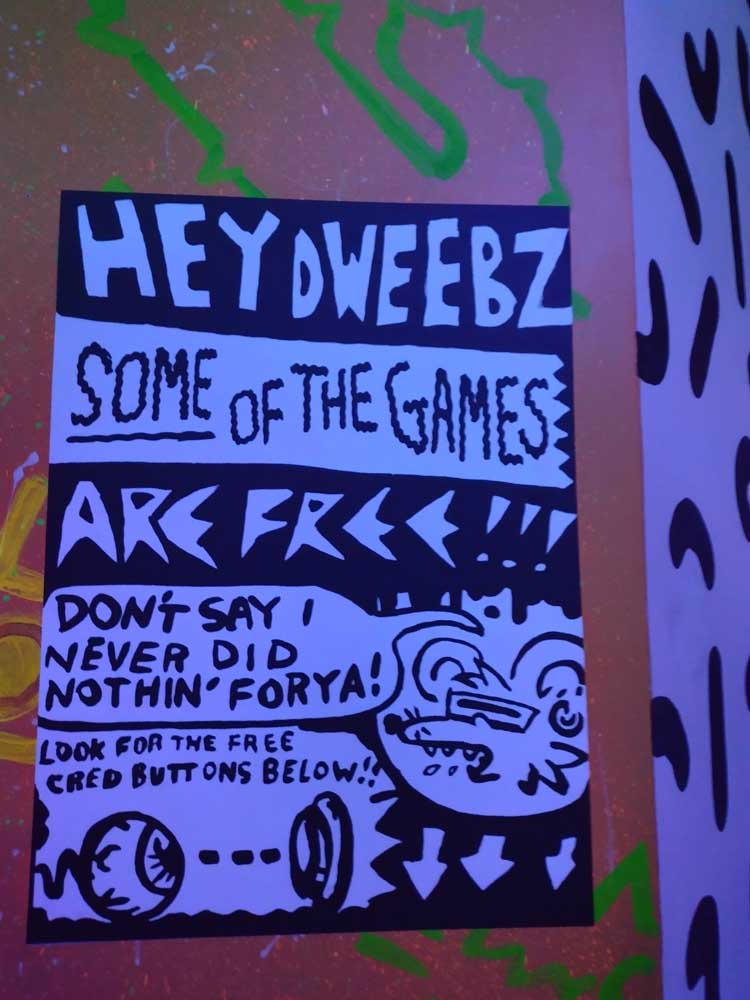 HEY DWEEBZ
SOME OF THE GAMES
ARE FREE!!!
DON'T SAY I
NEVER DID
NOTHIN' FOR YA!
LOOK FOR THE FREE
CRED BUTTONS BELOW!!